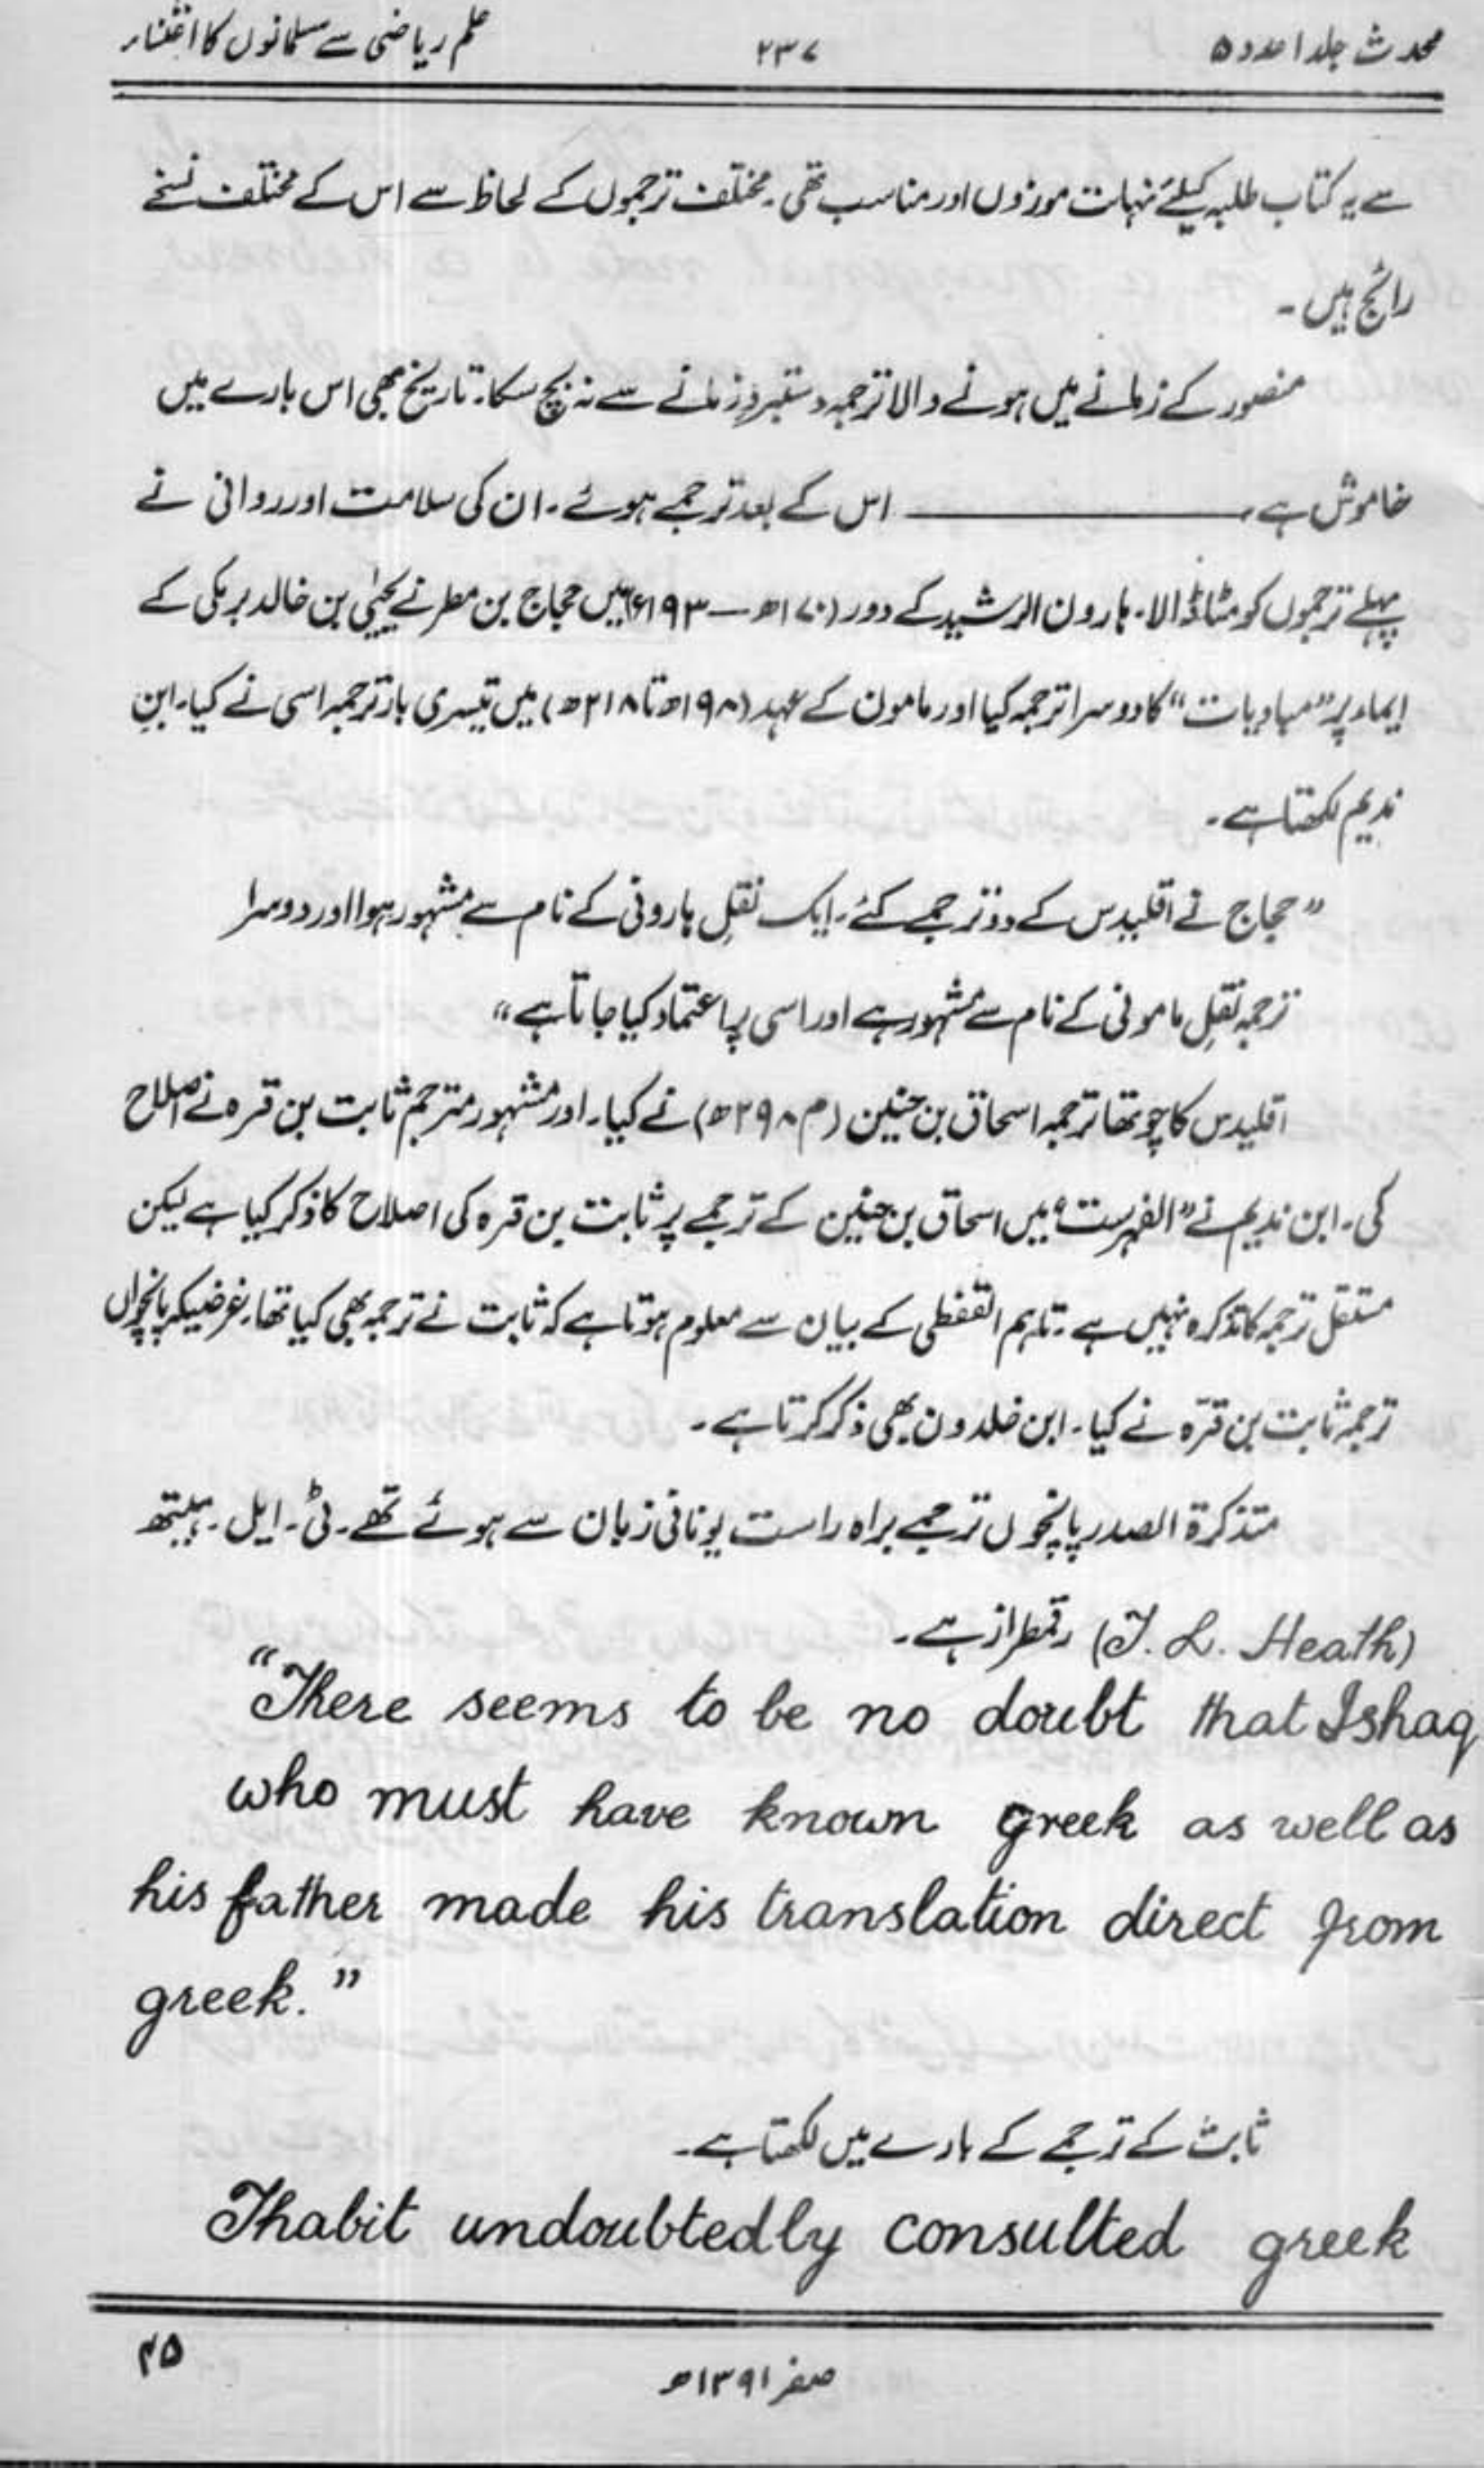 محدث جلد ا عدد ۵
۲۳۷
علم ریاضی سے مسلمانوں کا اعتناء
سے یہ کتاب طلبہ کیلئے نہات موزوں اور مناسب تھی۔ مختلف ترجموں کے لحاظ سے اس کے مختلف نسخے
رائج ہیں۔
منصور کے زمانے میں ہونے والا ترجمہ دستبردِ زمانے سے نہ بچ سکا۔ تاریخ بھی اس بارے میں
خاموش ہے، ——— اس کے بعد ترجمے ہوئے۔ ان کی سلامت اور روانی نے
پہلے ترجموں کو مٹا ڈالا۔ ہارون الرشید کے دور (۱۷۰ھ — ۱۹۳ء) میں حجاج بن مطر نے یحییٰ بن خالد برمکی کے
ایماء پر "مبادیات" کا دوسرا ترجمہ گیا اور مامون کے عہد (۱۹۸ھ تا ۲۱۸ھ) میں تیسری بار ترجمہ اسی نے کیا۔ ابنِ
ندیم لکھتا ہے۔
"حجاج نے اقلیدس کے دو ترجمے کئے۔ ایک نقلِ ہارونی کے نام سے مشہور ہوا اور دوسرا
ترجمہ نقلِ مامونی کے نام سے مشہور ہے اور اسی پر اعتماد کیا جاتا ہے"
اقلیدس کا چوتھا ترجمہ اسحاق بن حنین (م ۲۹۸ھ) نے کیا۔ اور مشہور مترجم ثابت بن قرہ نے اصلاح
کی۔ ابن ندیم نے "الفہرست" میں اسحاق بن حنین کے ترجمے پر ثابت بن قرہ کی اصلاح کا ذکر کیا ہے لیکن
مستقل ترجمہ کا تذکرہ نہیں ہے۔ تاہم القفطی کے بیان سے معلوم ہوتا ہے کہ ثابت نے ترجمہ بھی کیا تھا۔ غرضیکہ پانچواں
ترجمہ ثابت بن قرّہ نے کیا۔ ابن خلدون بھی ذکر کرتا ہے۔
متذکرة الصدر پانچوں ترجمے براہ راست یونانی زبان سے ہوئے تھے۔ ٹی۔ ایل۔ ہیتھ
(T. L. Heath) رقمطراز ہے۔
"There seems to be no doubt that Ishaq
who must have known greek as well as
his father made his translation direct from
greek."
ثابت کے ترجمے کے بارے میں لکھتا ہے۔
Thabit undoubtedly consulted greek
۴۵
صفر ۱۳۹۱ھ